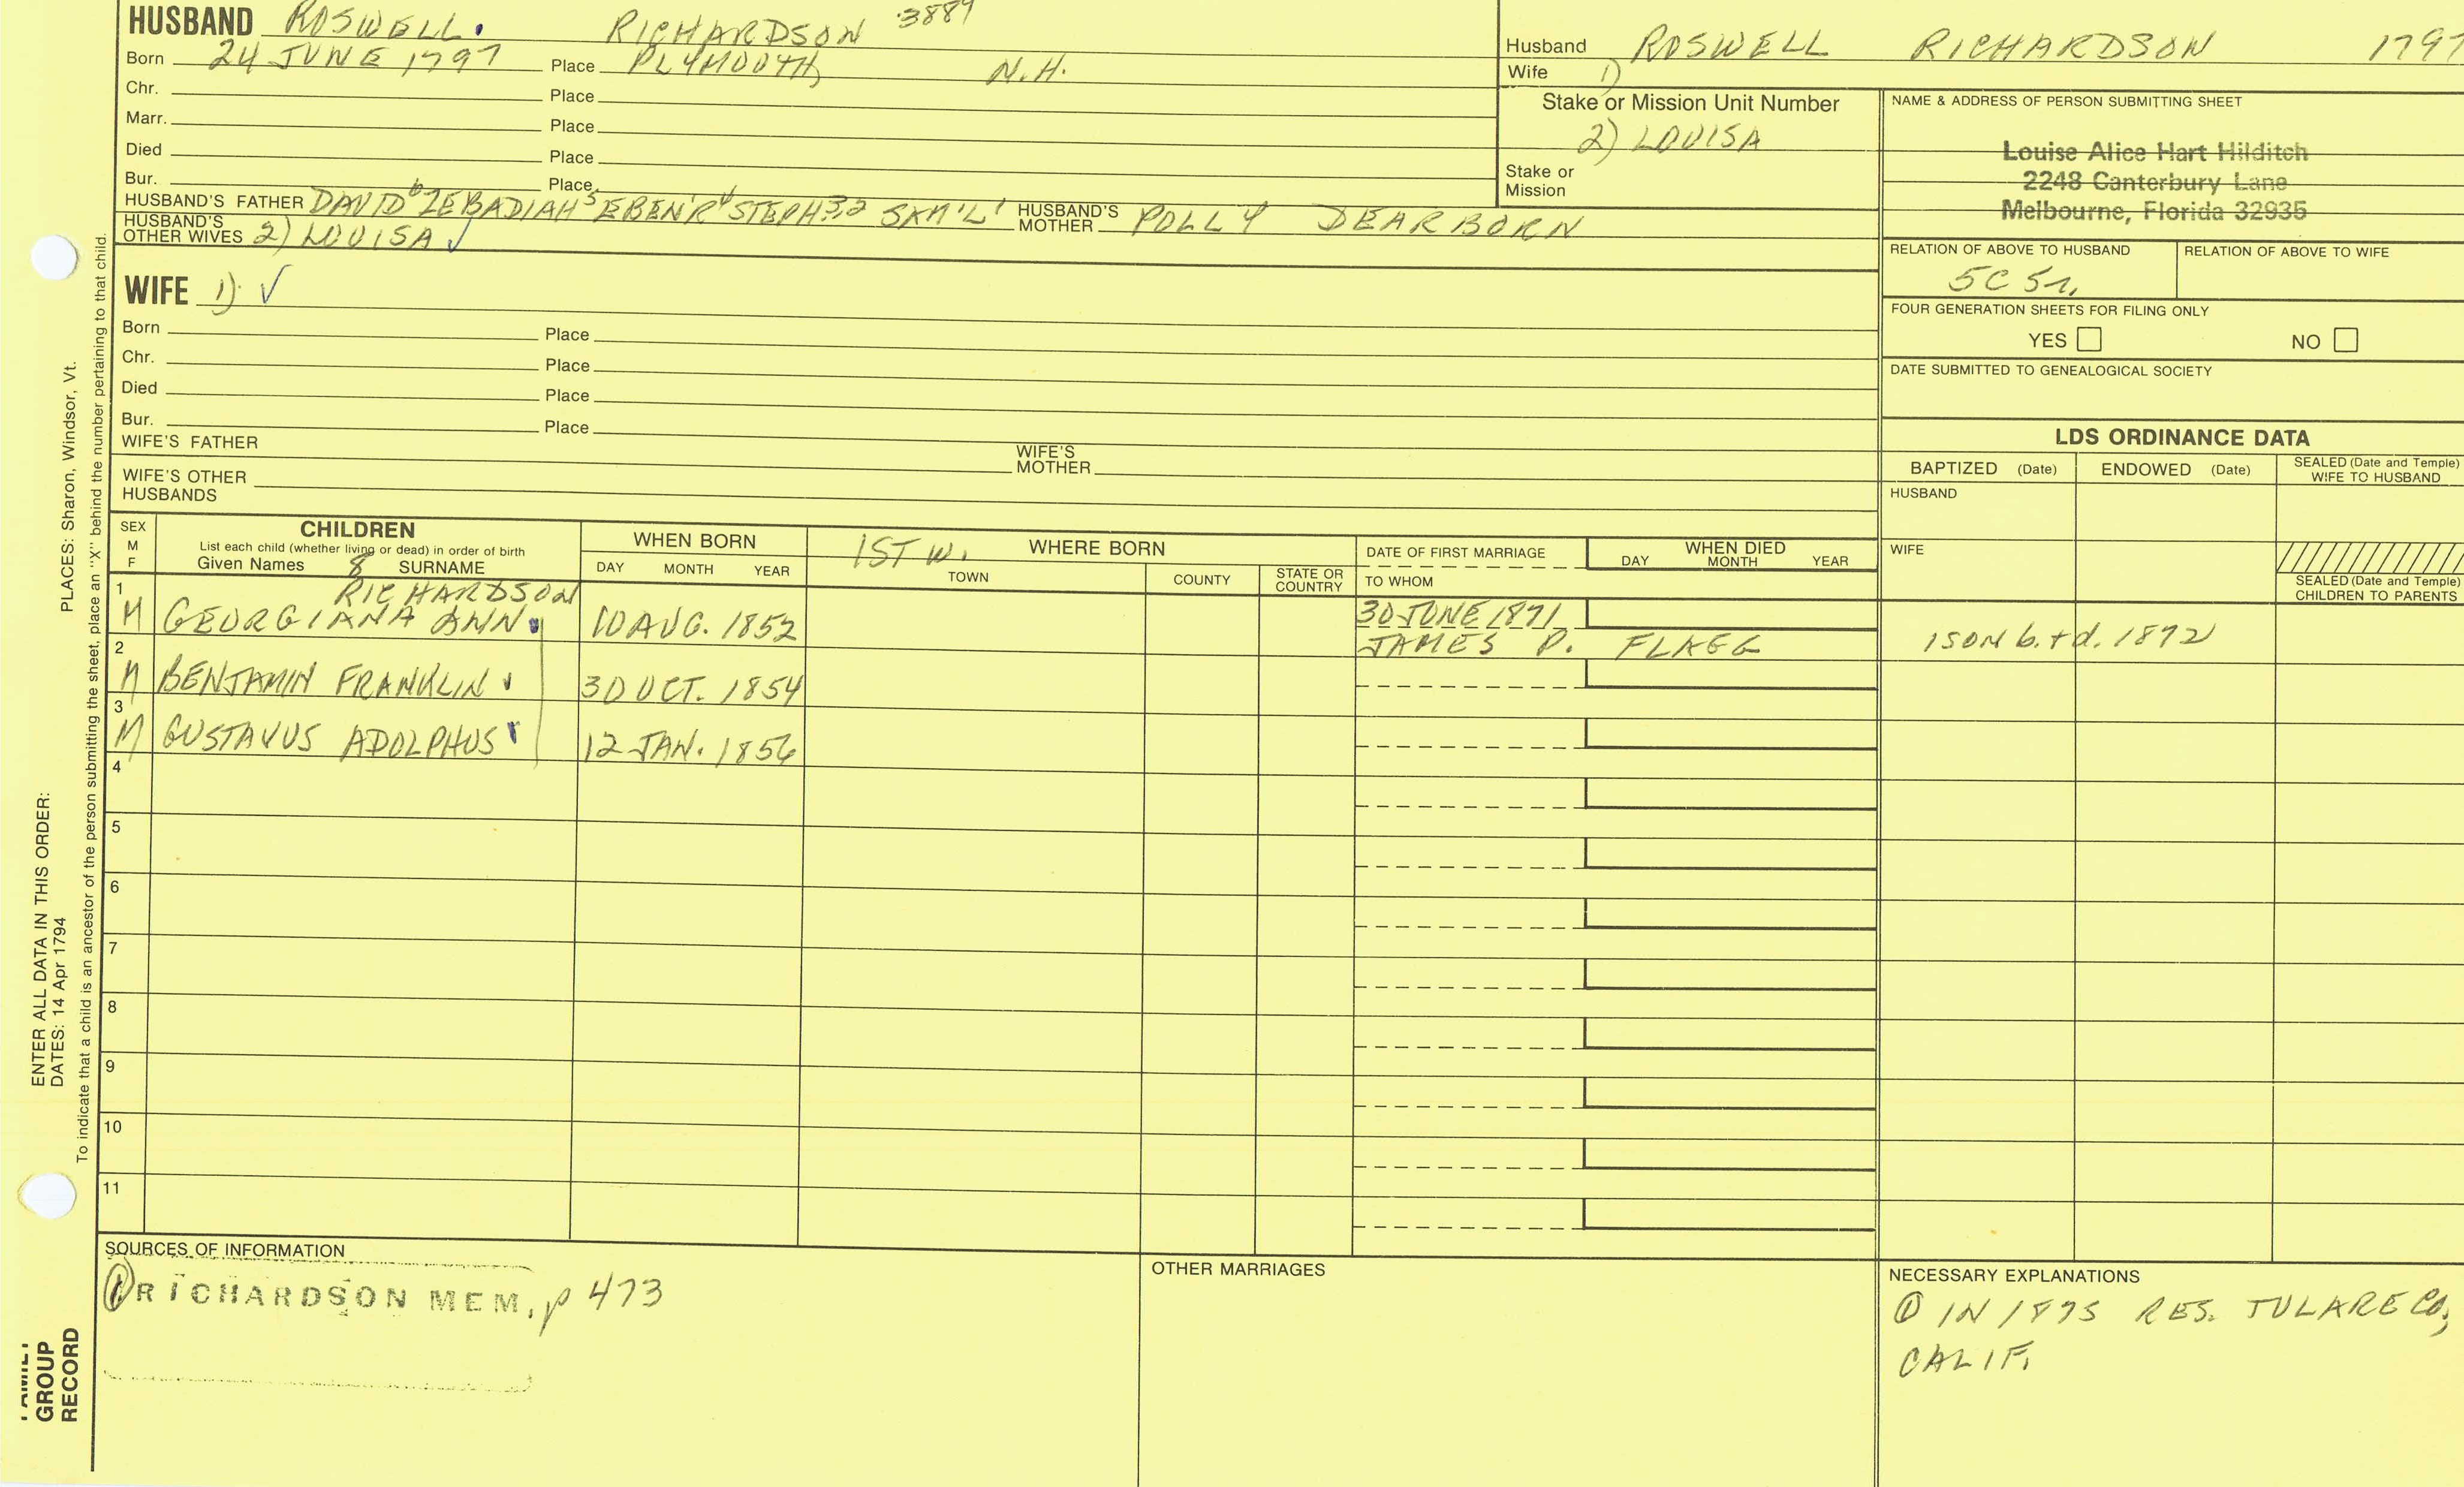 HUSBAND ROSWELL. RICHARDSON 3889
Born 24 JUNE 1797 Place PLYMOUTH, N.H.
Chr. Place
Marr. Place
Died Place
Bur. Place
HUSBAND'S FATHER DAVID6 ZEBADIAH5 EBEN'R4 STEPH3,2 SAM'L1 HUSBAND'S MOTHER POLLY DEARBORN
HUSBAND'S OTHER WIVES 2) LOUISA ✓
Husband ROSWELL RICHARDSON 1797
Wife 1)
Stake or Mission Unit Number
2) LOUISA
Stake or Mission
NAME & ADDRESS OF PERSON SUBMITTING SHEET
Louise Alice Hart Hilditch
2248 Canterbury Lane
Melbourne, Florida 32935
RELATION OF ABOVE TO HUSBAND RELATION OF ABOVE TO WIFE
5C 5r.
FOUR GENERATION SHEETS FOR FILING ONLY
YES NO
DATE SUBMITTED TO GENEALOGICAL SOCIETY
WIFE 1) ✓
Born Place
Chr. Place
Died Place
Bur. Place
WIFE'S FATHER WIFE'S MOTHER
WIFE'S OTHER HUSBANDS
LDS ORDINANCE DATA
BAPTIZED (Date) ENDOWED (Date) SEALED (Date and Temple) WIFE TO HUSBAND
HUSBAND
WIFE
SEALED (Date and Temple) CHILDREN TO PARENTS
SEX M F
CHILDREN
List each child (whether living or dead) in order of birth
Given Names 8 SURNAME
WHEN BORN
DAY MONTH YEAR
1ST W. WHERE BORN
TOWN COUNTY STATE OR COUNTRY
DATE OF FIRST MARRIAGE
TO WHOM
WHEN DIED
DAY MONTH YEAR
1 RICHARDSON 30 JUNE 1871
M GEORGIANA ANN 10 AUG. 1852 JAMES P. FLAGG 1 SON b. + d. 1872
2
M BENJAMIN FRANKLIN 30 OCT. 1854
3
M GUSTAVUS ADOLPHUS 12 JAN. 1856
4
5
6
7
8
9
10
11
SOURCES OF INFORMATION
① RICHARDSON MEM, p 473
OTHER MARRIAGES
NECESSARY EXPLANATIONS
① IN 1875 RES. TULARE CO,
CALIF.
PLACES: Sharon, Windsor, Vt.
To indicate that a child is an ancestor of the person submitting the sheet, place an "X" behind the number pertaining to that child.
ENTER ALL DATA IN THIS ORDER:
DATES: 14 Apr 1794
FAMILY
GROUP
RECORD